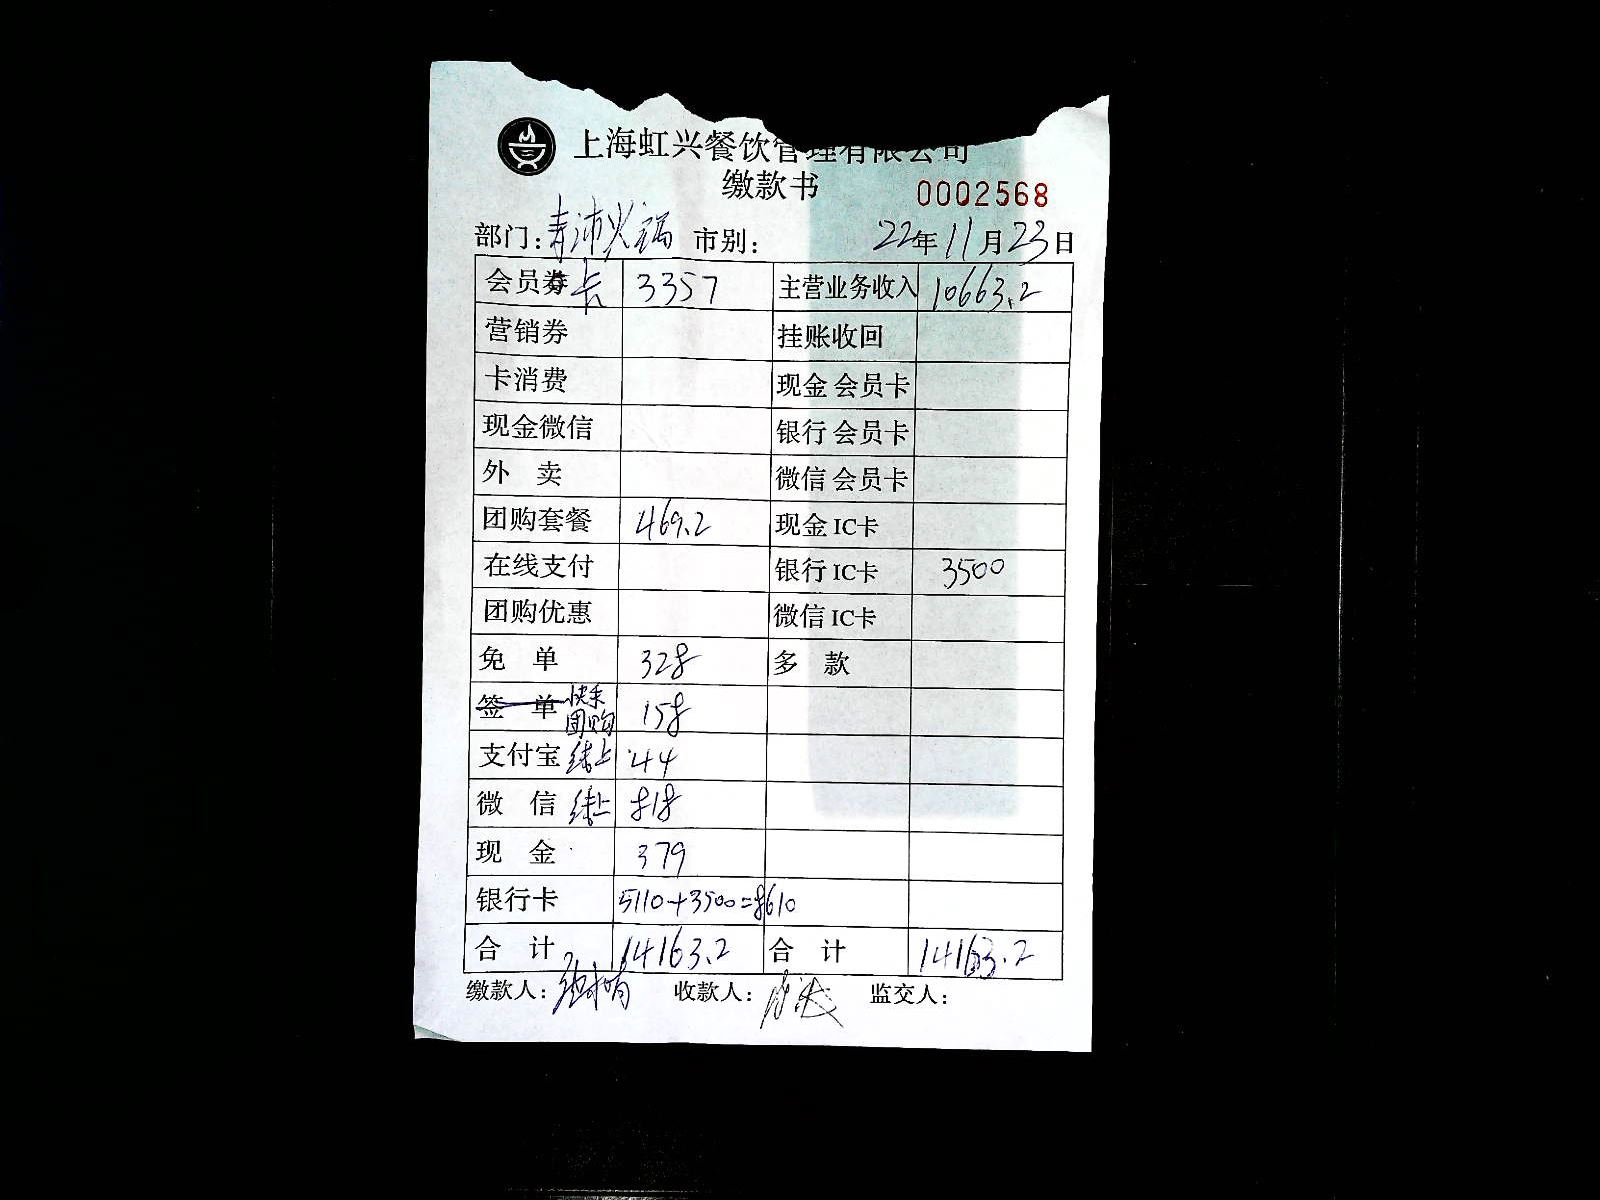 上海虹兴餐饮管理有限公司
缴款书
0002568
部门：火锅 市别： 22年11月23日
会员券卡 3357 主营业务收入 10663.2
营销券 挂账收回
卡消费 现金会员卡
现金微信 银行会员卡
外 卖 微信会员卡
团购套餐 469.2 现金IC卡
在线支付 银行IC卡 3500
团购优惠 微信IC卡
免 单 328 多 款
签 单 快乐团购 158
支付宝 线上 44
微 信 线上 818
现 金 379
银行卡 5110+3500=8610
合 计 14163.2 合 计 14163.2
缴款人： 收款人： 监交人：